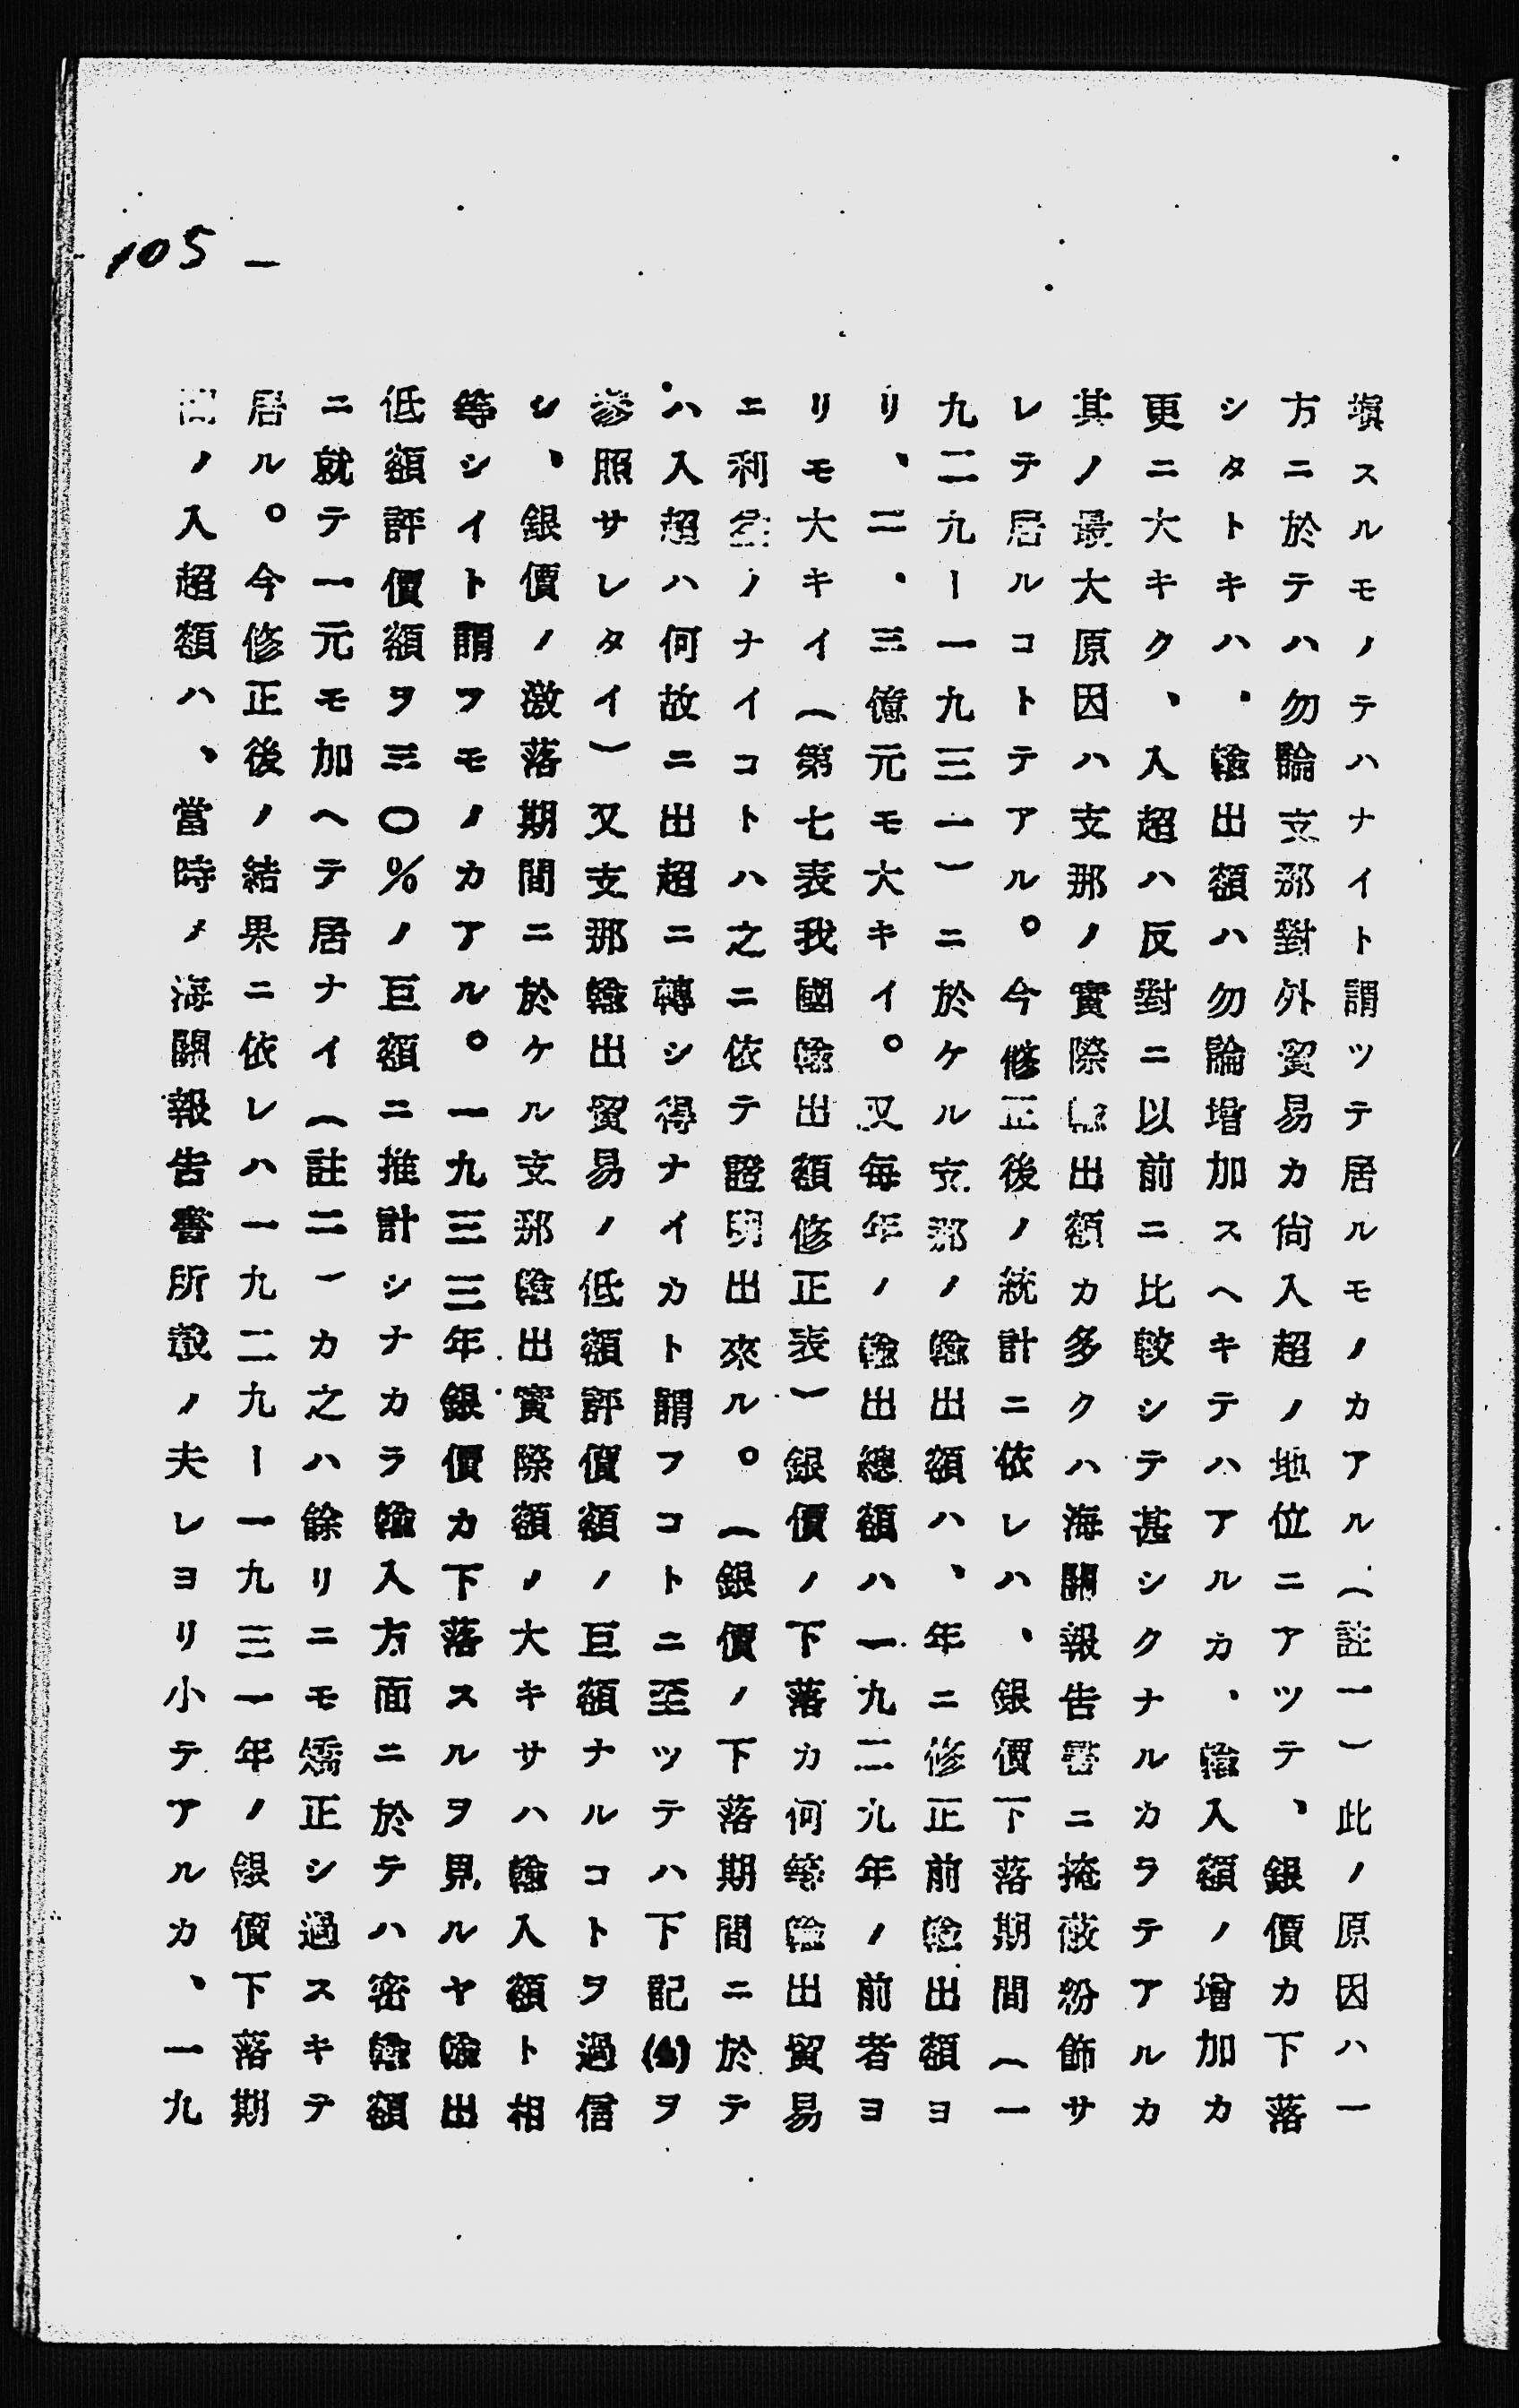 塡スルモノテハナイト謂ツテ居ルモノカアル(註一)此ノ原因ハ一
方ニ於テハ勿論支那對外貿易カ尙入超ノ地位ニアツテ、銀價カ下落
シタトキハ、輸出額ハ勿論增加スヘキテハアルカ、輸入額ノ增加カ
更ニ大キク、入超ハ反對ニ以前ニ比較シテ甚シクナルカラテアルカ
其ノ最大原因ハ支那ノ實際輸出額カ多クハ海關報告書ニ掩蔽粉飾サ
レテ居ルコトテアル。今修正後ノ統計ニ依レハ、銀價下落期間(一
九二九ー一九三一)ニ於ケル支那ノ輸出額ハ、年ニ修正前輸出額ヨ
リ、二、三億元モ大キイ。又每年ノ輸出總額ハ一九二九年ノ前者ヨ
リモ大キイ(第七表我國輸出額修正表)銀價ノ下落カ何等輸出貿易
ニ利益ノナイコトハ之ニ依テ證明出來ル。(銀價ノ下落期間ニ於テ
ハ入超ハ何故ニ出超ニ轉シ得ナイカト謂フコトニ至ツテハ下記(4)ヲ
參照サレタイ)又支那輸出貿易ノ低額評價額ノ巨額ナルコトヲ過信
シ、銀價ノ激落期間ニ於ケル支那輸出實際額ノ大キサハ輸入額ト相
等シイト謂フモノカアル。一九三三年銀價カ下落スルヲ見ルヤ輸出
低額評價額ヲ三〇%ノ巨額ニ推計シナカラ輸入方面ニ於テハ密輸額
ニ就テ一元モ加ヘテ居ナイ(註二)カ之ハ餘リニモ矯正シ過スキテ
居ル。今修正後ノ結果ニ依レハ一九二九ー一九三一年ノ銀價下落期
間ノ入超額ハ、當時ノ海關報告書所載ノ夫レヨリ小テアルカ、一九
105 —